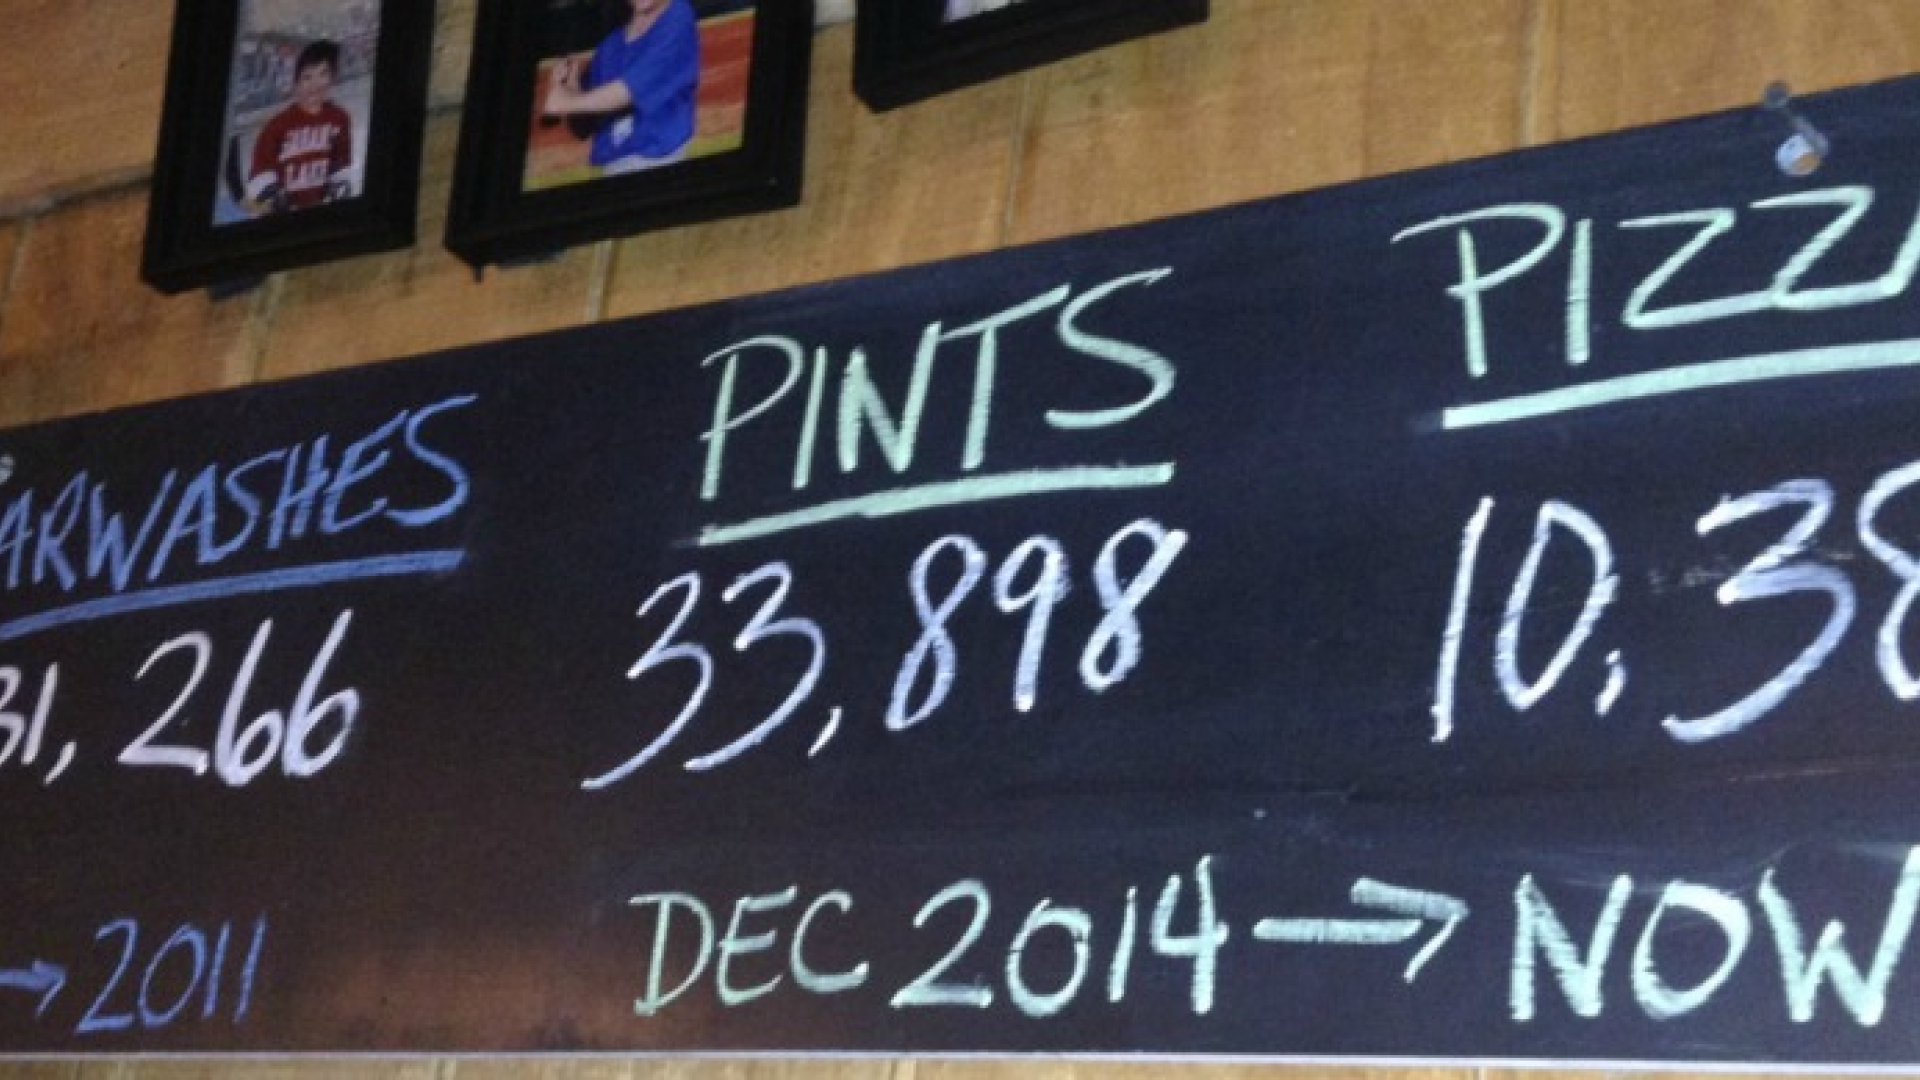 PINTS
33,898
DEC 2014 → NOW
ARWASHES
31, 266
→ 2011
PIZZ
10,38